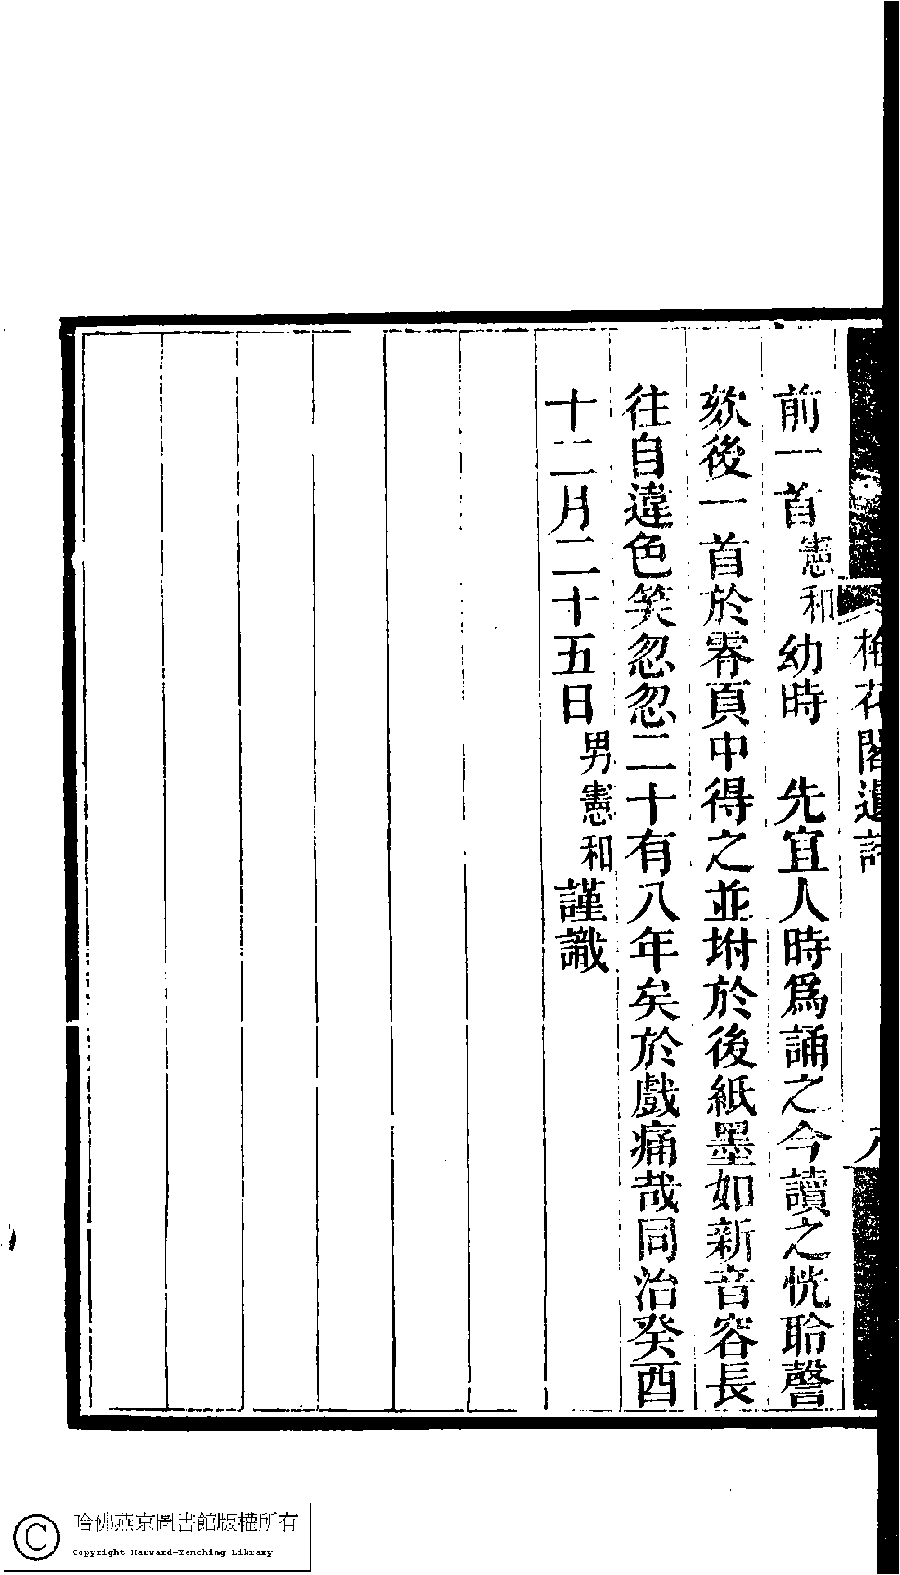 梅花閣遺詩
八
前一首憲和幼時　先宜人時爲誦之今讀之恍聆謦
欬後一首於零頁中得之並坿於後紙墨如新音容長
往自違色笑忽忽二十有八年矣於戲痛哉同治癸酉
十二月二十五日男憲和謹識
哈佛燕京圖書館版權所有
Copyright Harvard-Yenching Library